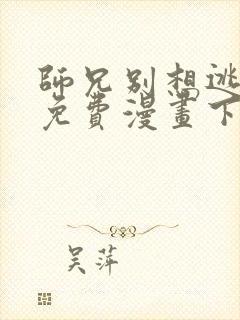 師兄別想逃
免費漫畫下
吴萍